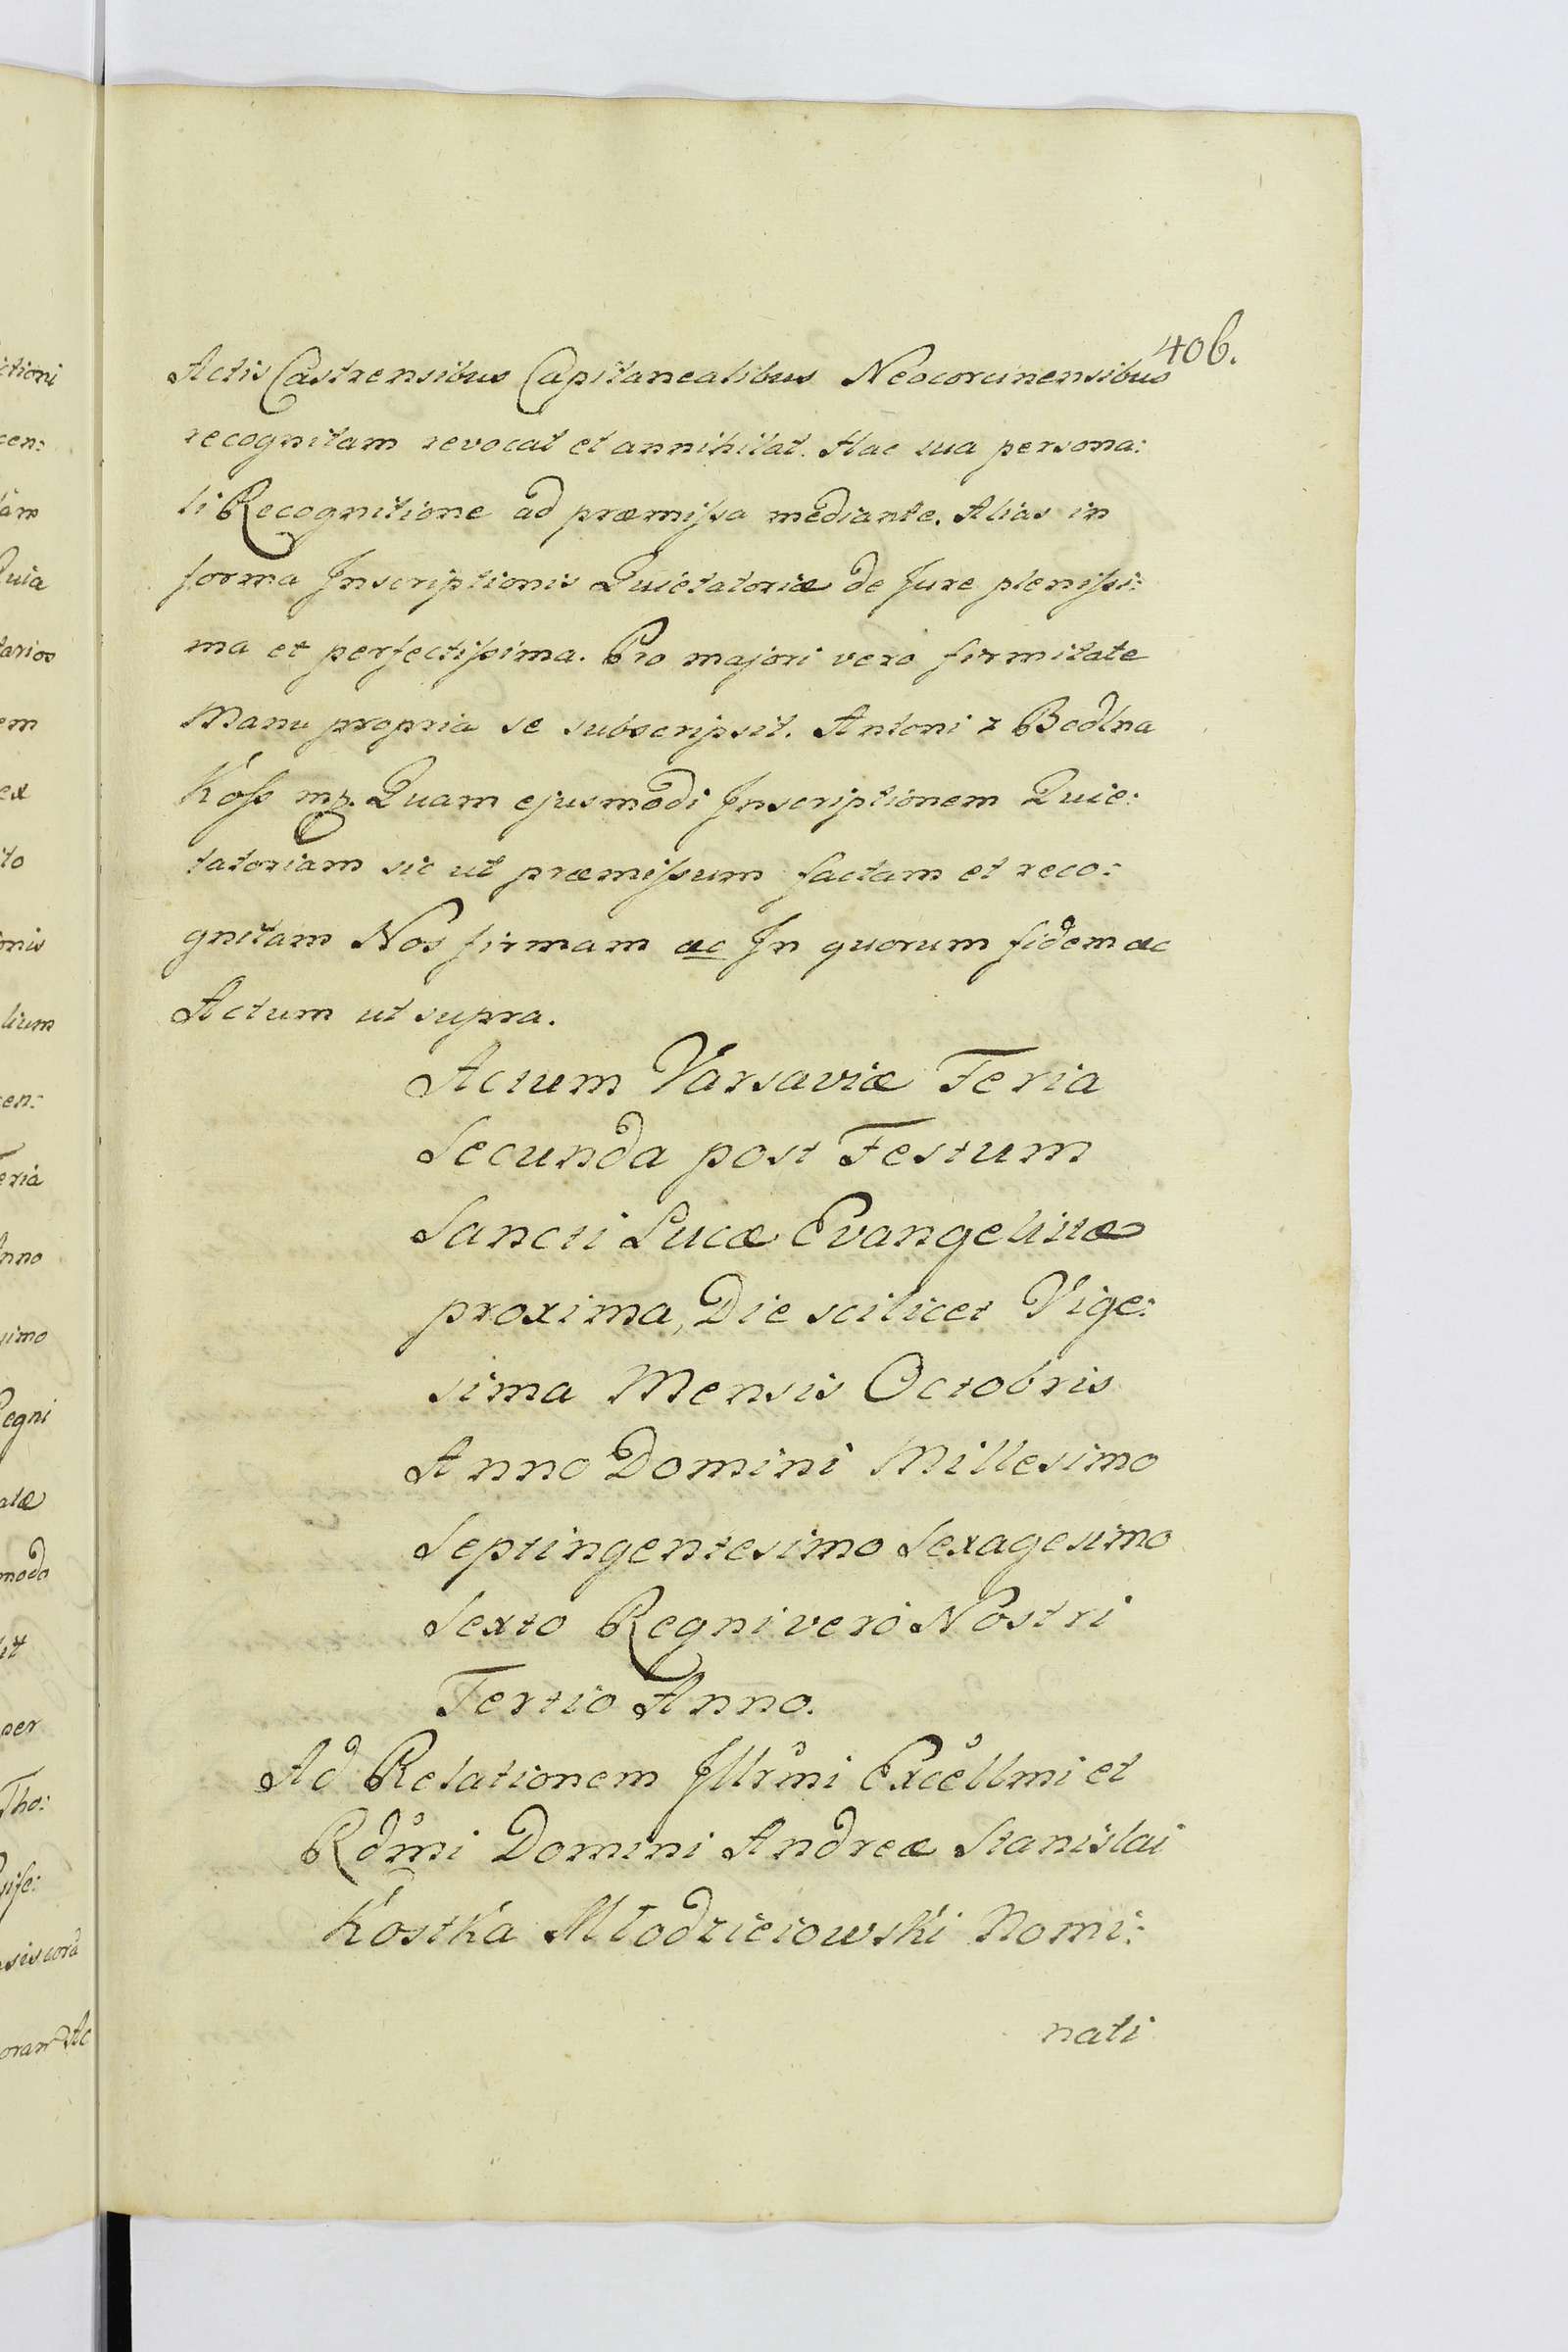 406.
Actis Castrensibus Capitanealibus Neocorcinensibus
recognitam revocat et annihilat. Hac sua persona:
li Recognitione ad præmiſsa mediante. Alias in
forma Inscriptionis Quietatoriæ de Jure pleniſsi:
ma et perfectiſsima. Pro majori vero firmitate
Manu propria se subscripsit. Antoni z Bodlna
Koſs mp. Quam ejusmodi Inscriptionem Quie:
tatoriam sic ut præmiſsum factam et reco:
gnitam Nos firmam ac In quorum fidem ac
Actum ut supra.
Actum Varsaviæ Feria
Secunda post Festum
Sancti Lucæ Evangelistæ
proxima, Die scilicet Vige:
sima Mensis Octobris
Anno Domini Millesimo
Septingentesimo Sexagesimo
Sexto Regni vero Nostri
Tertio Anno.
Ad Relationem Illrm̃i Excellm̃i et
Rdm̃i Domini Andreæ Stanislai
Kostka Młodzieiowski Nomi:
nati
ctioni
cen:
tam
Quia
tarios
em
ex
ito
onis
lium
cen:
eria
Anno
simo
Regni
atæ
modo
it
per
Tho: